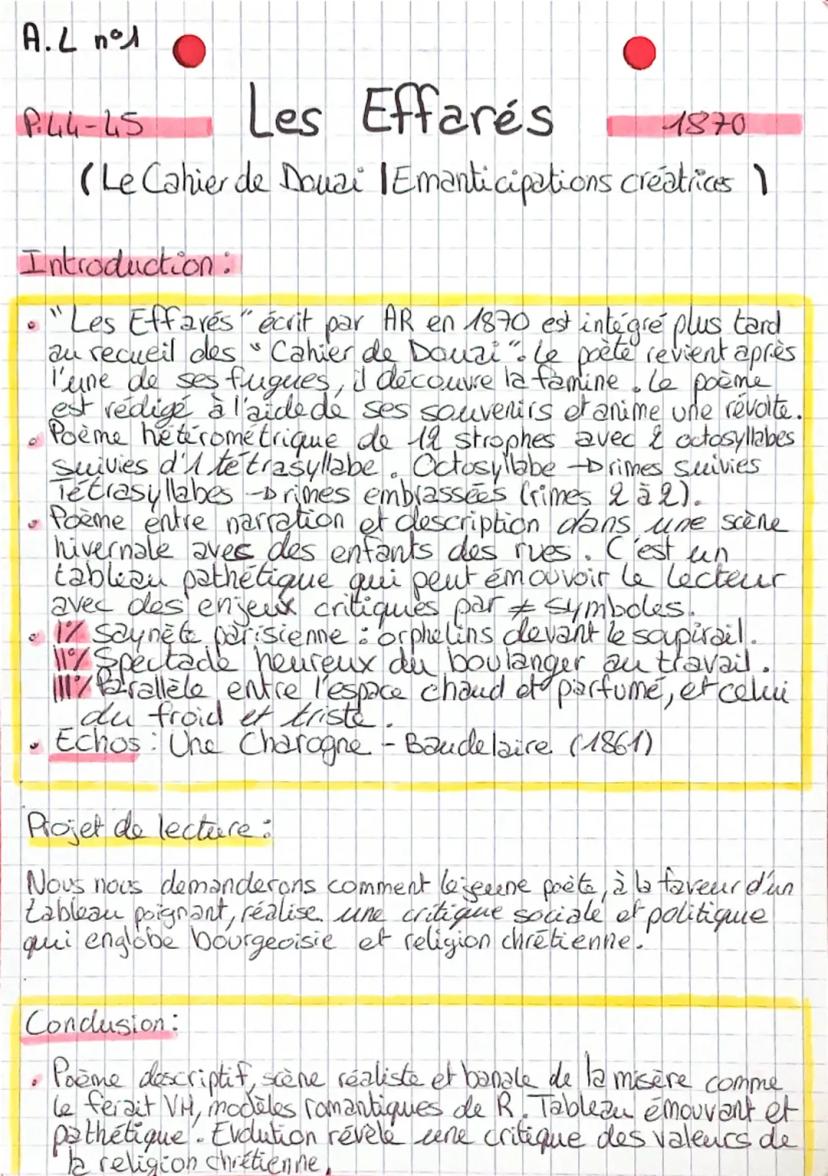 A.L n°1
P.44-45 Les Effarés 1870
(Le Cahier de Douai | Emanticipations créatrices )
Introduction :
• "Les Effarés" écrit par AR en 1870 est intégré plus tard
au recueil des "Cahier de Douai". Le poète revient après
l'une de ses fugues, il découvre la famine. Le poème
est rédigé à l'aide de ses souvenirs et anime une révolte.
• Poème hétérométrique de 12 strophes avec 2 octosyllabes
suivies d'1 tétrasyllabe. Octosyllabe → rimes suivies
Tétrasyllabes → rimes embrassées (rimes 2 à 2).
• Poème entre narration et description dans une scène
hivernale avec des enfants des rues. C'est un
tableau pathétique qui peut émouvoir le lecteur
avec des enjeux critiques par ≠ symboles.
• I°/ Saynète parisienne : orphelins devant le soupirail.
II°/ Spectacle heureux du boulanger au travail.
III°/ Parallèle entre l'espace chaud et parfumé, et celui
du froid et triste.
• Echos : Une Charogne - Baudelaire (1861)
Projet de lecture :
Nous nous demanderons comment le jeune poète, à la faveur d'un
tableau poignant, réalise une critique sociale et politique
qui englobe bourgeoisie et religion chrétienne.
Conclusion :
• Poème descriptif, scène réaliste et banale de la misère comme
le ferait VH, modèles romantiques de R. Tableau émouvant et
pathétique. Evolution révèle une critique des valeurs de
la religion chrétienne.